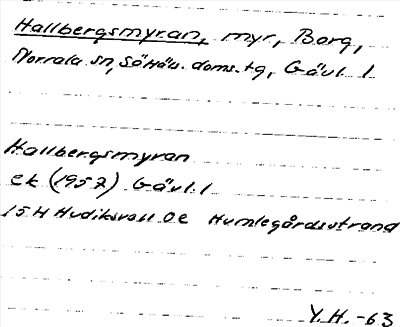 Hallbergsmyran, myr, Berg,
Norrala sn, SöHäls. doms.tg, Gävl. l
Hallbergsmyran
ek (1957) Gävl. l
15H Hudiksvall 0e Humlegårdsstrand
Y.H. -63